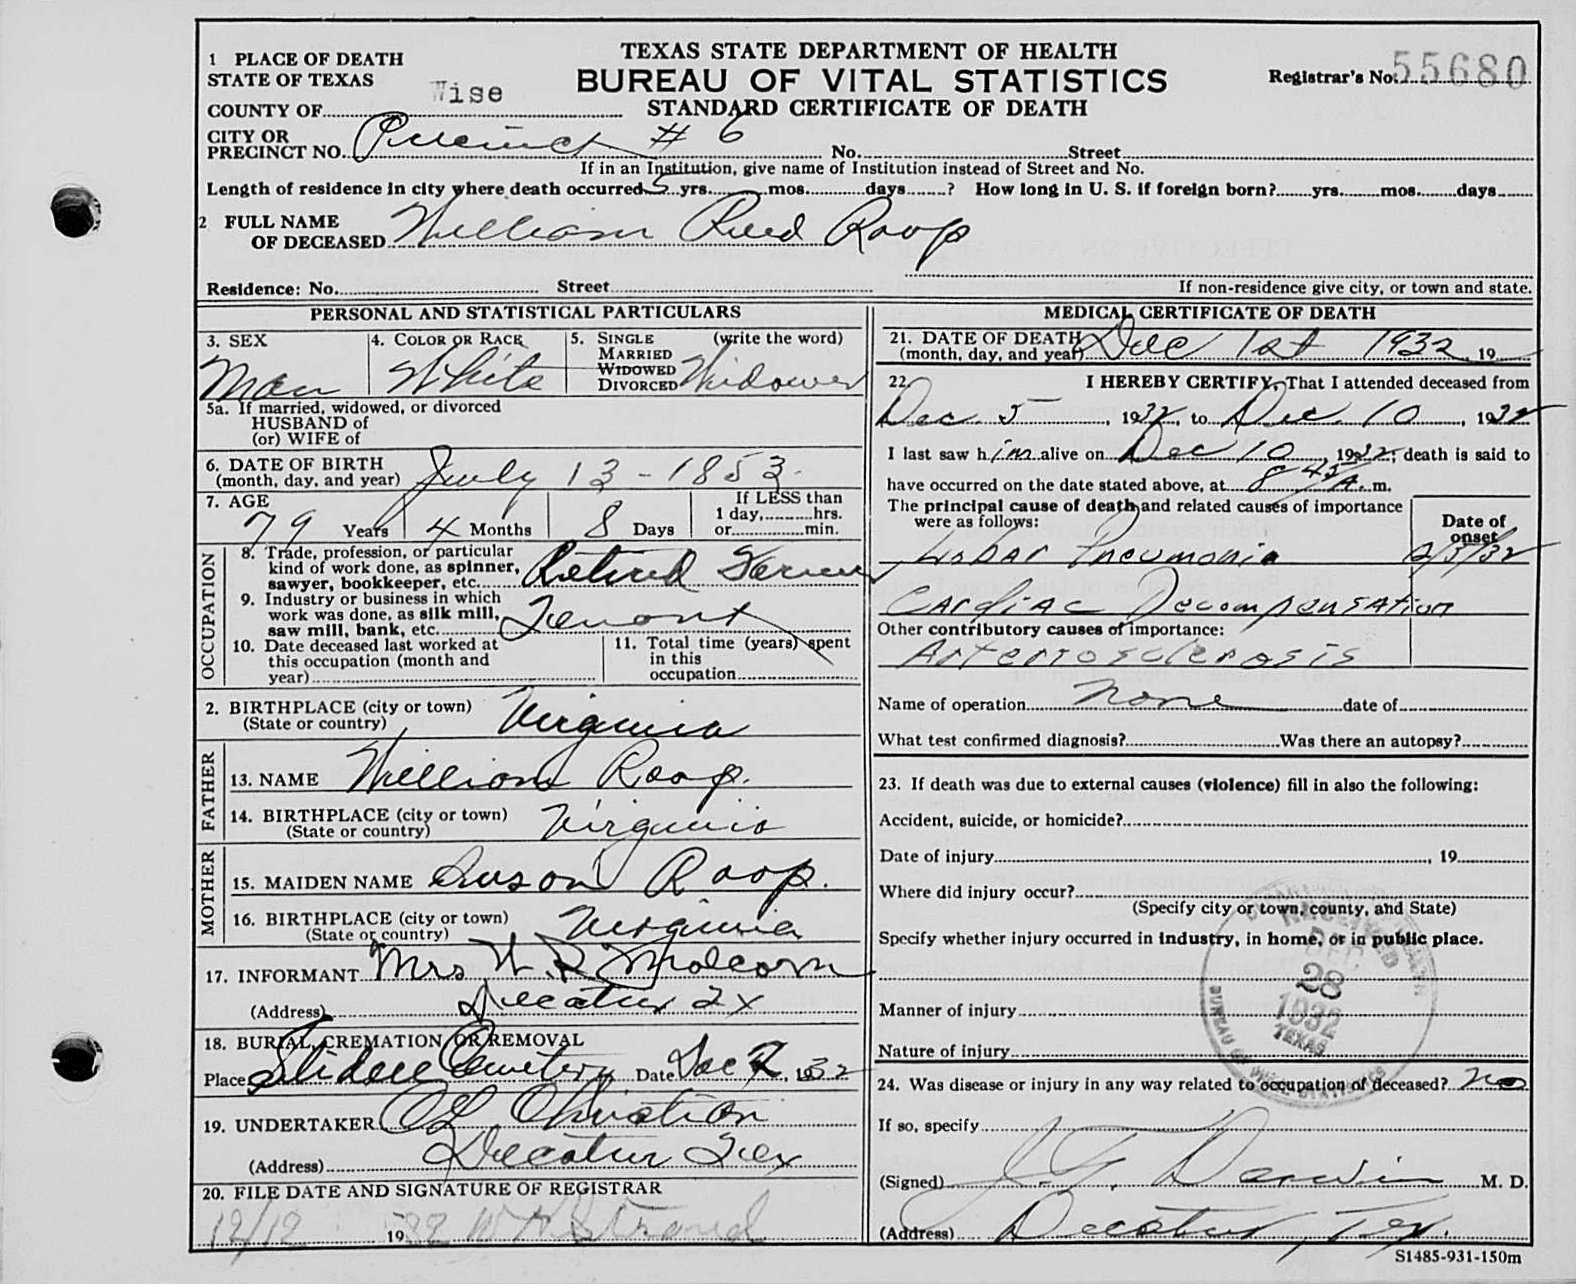 TEXAS STATE DEPARTMENT OF HEALTH
BUREAU OF VITAL STATISTICS
STANDARD CERTIFICATE OF DEATH
Registrar's No. 55680
1 PLACE OF DEATH
STATE OF TEXAS
COUNTY OF Wise
CITY OR
PRECINCT NO. Precinct # 6 No. Street
If in an Institution, give name of Institution instead of Street and No.
Length of residence in city where death occurred 5 yrs. mos. days ? How long in U. S. if foreign born? yrs. mos. days
2 FULL NAME
OF DECEASED William Reed Roop
Residence: No. Street
If non-residence give city, or town and state.
PERSONAL AND STATISTICAL PARTICULARS
3. SEX Man
4. COLOR OR RACE White
5. SINGLE (write the word)
MARRIED
WIDOWED
DIVORCED Widower
5a. If married, widowed, or divorced
HUSBAND of
(or) WIFE of
6. DATE OF BIRTH
(month, day, and year) July 13-1853.
7. AGE 79 Years 4 Months 8 Days
If LESS than
1 day, hrs.
or min.
OCCUPATION
8. Trade, profession, or particular
kind of work done, as spinner,
sawyer, bookkeeper, etc. Retired
9. Industry or business in which
work was done, as silk mill,
saw mill, bank, etc.
10. Date deceased last worked at
this occupation (month and
year)
11. Total time (years) spent
in this
occupation
2. BIRTHPLACE (city or town)
(State or country) Virginia
FATHER
13. NAME William Roop.
14. BIRTHPLACE (city or town)
(State or country) Virginia
MOTHER
15. MAIDEN NAME Susan Roop.
16. BIRTHPLACE (city or town)
(State or country) Virginia
17. INFORMANT Mrs
(Address) Decatur Tx
18. BURIAL, CREMATION OR REMOVAL
Place Slidell Cemetery Date Dec 2, 1932
19. UNDERTAKER Christian
(Address) Decatur Tex
20. FILE DATE AND SIGNATURE OF REGISTRAR
12/12 1932 Strand
MEDICAL CERTIFICATE OF DEATH
21. DATE OF DEATH
(month, day, and year) Dec 1st 1932, 19
22. I HEREBY CERTIFY, That I attended deceased from
Dec. 5, 1932, to Dec. 10, 1932
I last saw him alive on Dec 10, 1932, death is said to
have occurred on the date stated above, at 8 45 A. m.
The principal cause of death and related causes of importance
were as follows:
Date of
onset
Lobar Pneumonia
Cardiac Decompensation
Other contributory causes of importance:
Arteriosclerosis
Name of operation none date of
What test confirmed diagnosis? Was there an autopsy?
23. If death was due to external causes (violence) fill in also the following:
Accident, suicide, or homicide?
Date of injury , 19
Where did injury occur?
(Specify city or town, county, and State)
Specify whether injury occurred in industry, in home, or in public place.
Manner of injury
Nature of injury
DEC
28
1932
TEXAS
BUREAU OF VITAL STATISTICS
24. Was disease or injury in any way related to occupation of deceased? no
If so, specify
(Signed) M. D.
(Address) Decatur, Tex.
S1485-931-150m